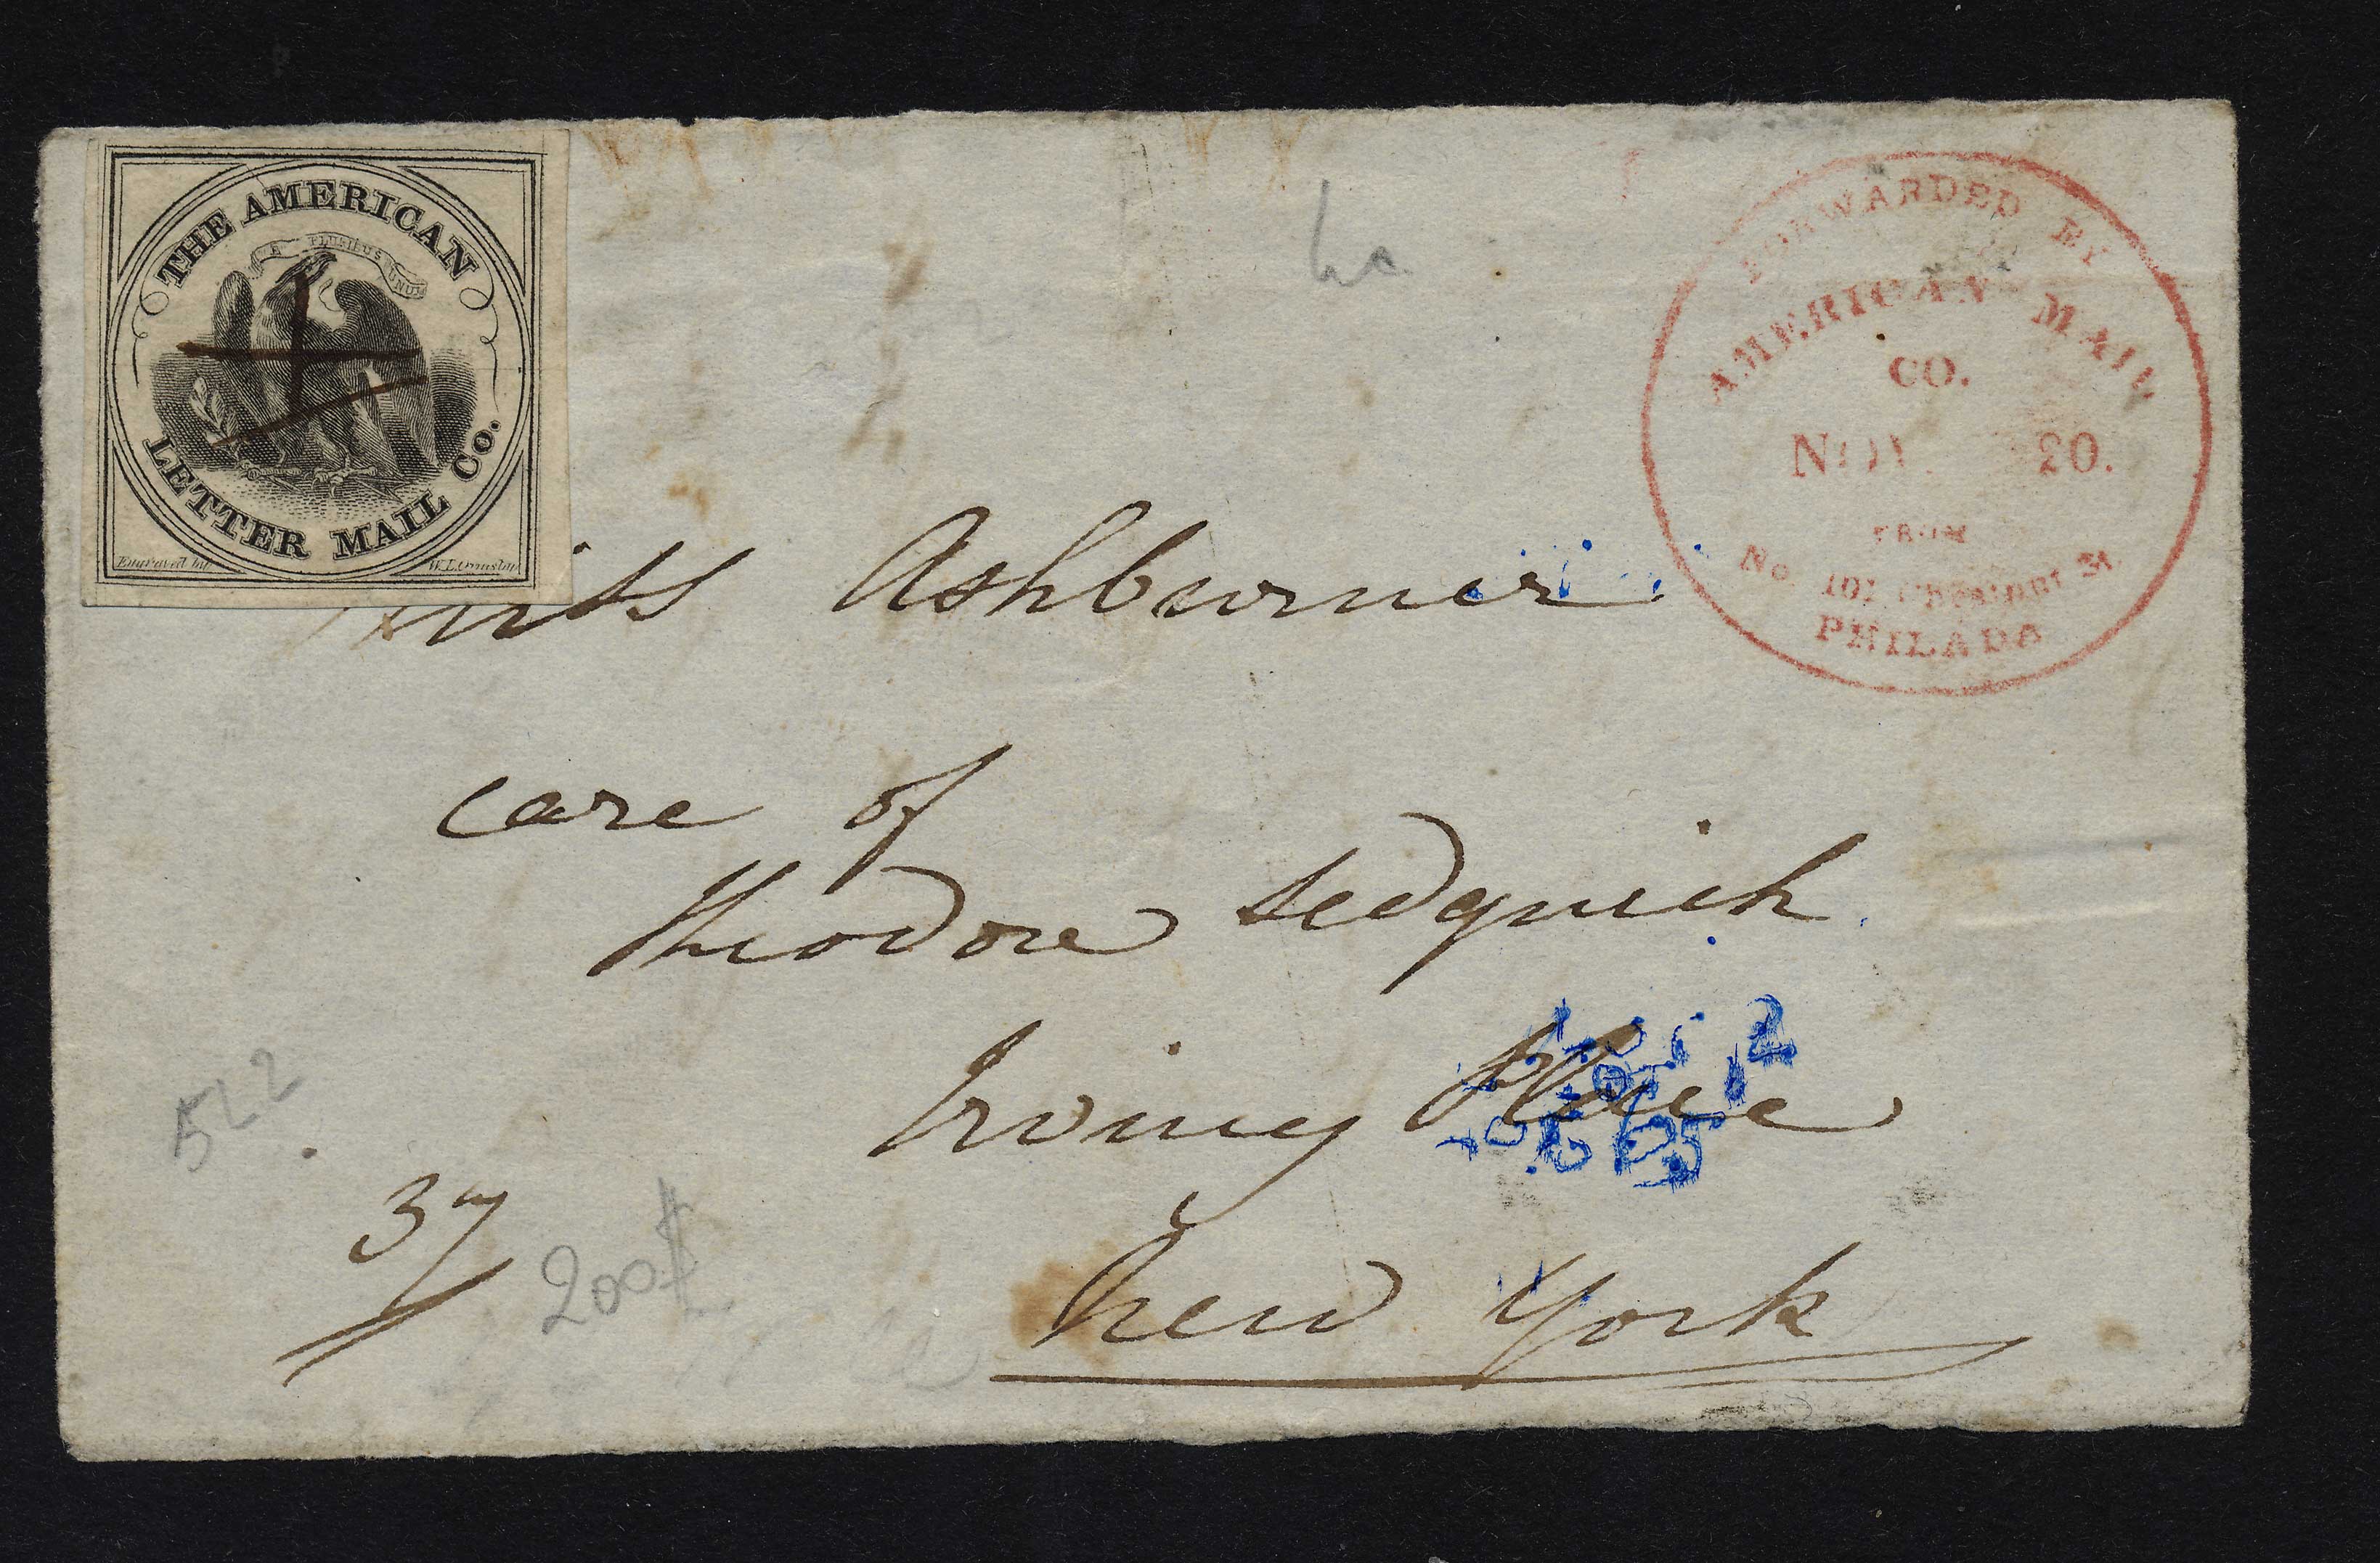 THE AMERICAN
E PLURIBUS UNUM
LETTER MAIL CO.
Engraved by W.L. Ormsby
FORWARDED BY
AMERICAN MAIL
CO.
NOV 20.
FROM
No. 101 CHESNUT St
PHILADA
Miss Ashburner
care of
Theodore Sedgwick
Irving Place
New York
37
522
200$